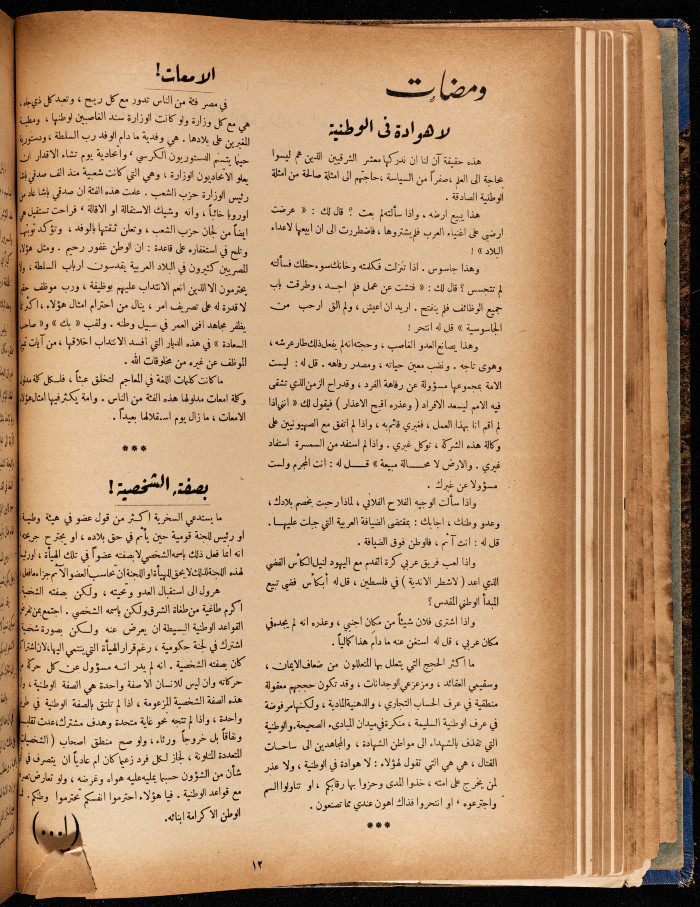 ومضات
لا هوادة في الوطنية
هذه حقيقة آن لنا ان ندركها معشر الشرقيين الذين هم ليسوا
بحاجة الى العلم ، صفراً من السياسة ، حاجتهم الى امثلة صالحة من امثلة
الوطنية الصادقة .
هذا يبيع ارضه ، واذا سألته لم بعت ؟ قال لك : « عرضت
ارضي على اغنياء العرب فلم يشتروها ، فاضطررت الى ان ابيعها لاعداء
البلاد » !
وهذا جاسوس . اذا تنزلت فكلمته وخانك سوء حظك فسألته
لم تتجسس ؟ قال لك : « فتشت عن عمل فلم اجد ، وطرقت باب
جميع الوظائف فلم ينفتح . اريد ان اعيش ، ولم الق ارحب من
الجاسوسية » قل له انتحر !
وهذا يصانع العدو الغاصب ، وحجته انه لم يفعل ذلك طار عرشه ،
وهوى تاجه . ونضب معين حياته ، ومصدر رفاهه . قل له : ليست
الامة بمجموعها مسؤولة عن رفاهة الفرد ، وقد راح الزمن الذي تشقى
فيه الامم ليسعد الافراد ( وعذره اقبح الاعذار ) فيقول لك « انني اذا
لم اقم انا بهذا العمل ، فغيري قائم به ، واذا لم اتفق مع الصهيونيين على
وكالة هذه الشركة ، توكل غيري . واذا لم استفد من السمسرة استفاد
غيري . والارض لا محالة مبيعة » قل له : انت المجرم ولست
مسؤولا عن غيرك .
واذا سألت الوجيه الفلاح الفلاني ، لماذا رحبت بخصم بلادك ،
وعدو وطنك ، اجابك : بمقتضى الضيافة العربية التي جبلت عليها .
قل له : انت آثم ، فالوطن فوق الضيافة .
واذا لعب فريق عربي كرة القدم مع اليهود لنيل الكأس الفضي
الذي اعد ( لاشطر الاندية ) في فلسطين ، قل له أبكأس فضي تبيع
المبدأ الوطني المقدس ؟
واذا اشترى فلان شيئاً من مكان اجنبي ، وعذره انه لم يجده في
مكان عربي ، قل له استغن عنه ما دام هذا كمالياً .
ما اكثر الحجج التي يتعلل بها المتعللون من ضعاف الايمان ،
وسقيمي العقائد ، ومزعزعي الوجدانات ، وقد تكون حججهم معقولة
منطقية في عرف الحساب التجاري ، والذهنية المادية ، ولكنها مرفوضة
في عرف الوطنية السليمة ، منكرة في ميدان المبادىء الصحيحة . والوطنية
التي تقذف بالشهداء الى مواطن الشهادة ، والمجاهدين الى ساحات
القتال ، هي هي التي تقول لهؤلاء : لا هوادة في الوطنية ، ولا عذر
لمن يخرج على امته ، خذوا المدى وحزوا بها رقابكم ، او تناولوا السم
واجترعوه ، او انتحروا فذاك اهون عندي مما تصنعون .
***
الامعات !
في مصر فئة من الناس تدور مع كل ريح ، وتعبد كل ذي جاه ،
هي مع كل وزارة ولو كانت الوزارة سند الغاصبين لوطنها ، ومطية
المغيرين على بلادها . هي وفدية ما دام الوفد رب السلطة ، ودستورية
حينما يتسنم الدستوريون الكرسي ، واتحادية يوم تشاء الاقدار ان
يعلو الاتحاديون الوزارة ، وهي التي كانت شعبية منذ الف صدقي باشا
رئيس الوزارة حزب الشعب . علمت هذه الفئة ان صدقي باشا عاد من
اوروبا خائباً ، وانه وشيك الاستقالة او الاقالة ، فراحت تستقيل هي
ايضاً من لجان حزب الشعب ، وتعلن ثقتها بالوفد ، وتؤكد توبتها
وتلح في استغفاره على قاعدة : ان الوطن غفور رحيم . ومثل هؤلاء
المصريين كثيرون في البلاد العربية يقدسون ارباب السلطة ، ولا
يحترمون الا الذين انعم الانتداب عليهم بوظيفة ، ورب موظف حقير
لا قدرة له على تصريف امر ، ينال من احترام امثال هؤلاء ، اكثر مما
يظفر مجاهد افنى العمر في سبيل وطنه . ولقب « بك » و« صاحب
السعادة » في هذه الديار التي أفسد الانتداب اخلاقها ، من آيات تميز
الموظف عن غيره من مخلوقات الله .
ما كانت كلمات اللغة في المعاجم لتخلق عبثاً ، فلكل كلمة مدلول
وكلمة امعات مدلولها هذه الفئة من الناس . وامة يكثر فيها امثال هؤلاء
الامعات ، ما زال يوم استقلالها بعيداً .
***
بصفته الشخصية !
ما يستدعي السخرية اكثر من قول عضو في هيئة وطنية
او رئيس للجنة قومية حين يأثم في حق بلاده ، او يجترح جريمة
انه انما فعل ذلك باسمه الشخصي لا بصفته عضواً في تلك الهيأة ، او رئيساً
لهذه اللجنة لذلك لا يحق للهيأة او اللجنة ان تحاسب العضو الآثم جزاء ما فعل
هرول الى استقبال العدو وتحيته ، ولكن بصفته الشخصية
اكرم طاغية من طغاة الشرق ولكن باسمه الشخصي . اجتمع بمن تفرض
القواعد الوطنية البسيطة ان يعرض عنه ولكن بصورة شخصية
اشترك في لجنة حكومية ، رغم قرار الهيأة التي ينتمي اليها ، لان اشتراكه
كان بصفته الشخصية . انه لم يدر انه مسؤول عن كل حركة من
حركاته وان ليس للانسان الا صفة واحدة هي الصفة الوطنية ، وان
هذه الصفة الشخصية المزعومة ، اذا لم تلتق بالصفة الوطنية في طريق
واحدة ، واذا لم تتجه نحو غاية متحدة وهدف مشترك ، عدت تقلباً
ونفاقاً بل خروجاً ورثاء ، ولو صح منطق اصحاب ( الشخصيات )
المتعددة المتلونة ، لجاز لكل فرد زعيما كان ام عادياً ان يتصرف في
شأن من الشؤون حسبما يمليه عليه هواه وغرضه ، ولو تعارض تصرفه
مع قواعد الوطنية . فيا هؤلاء احترموا انفسكم تحترموا وطنكم ،
الوطن الا كرامة ابنائه .
(ا...)
١٢